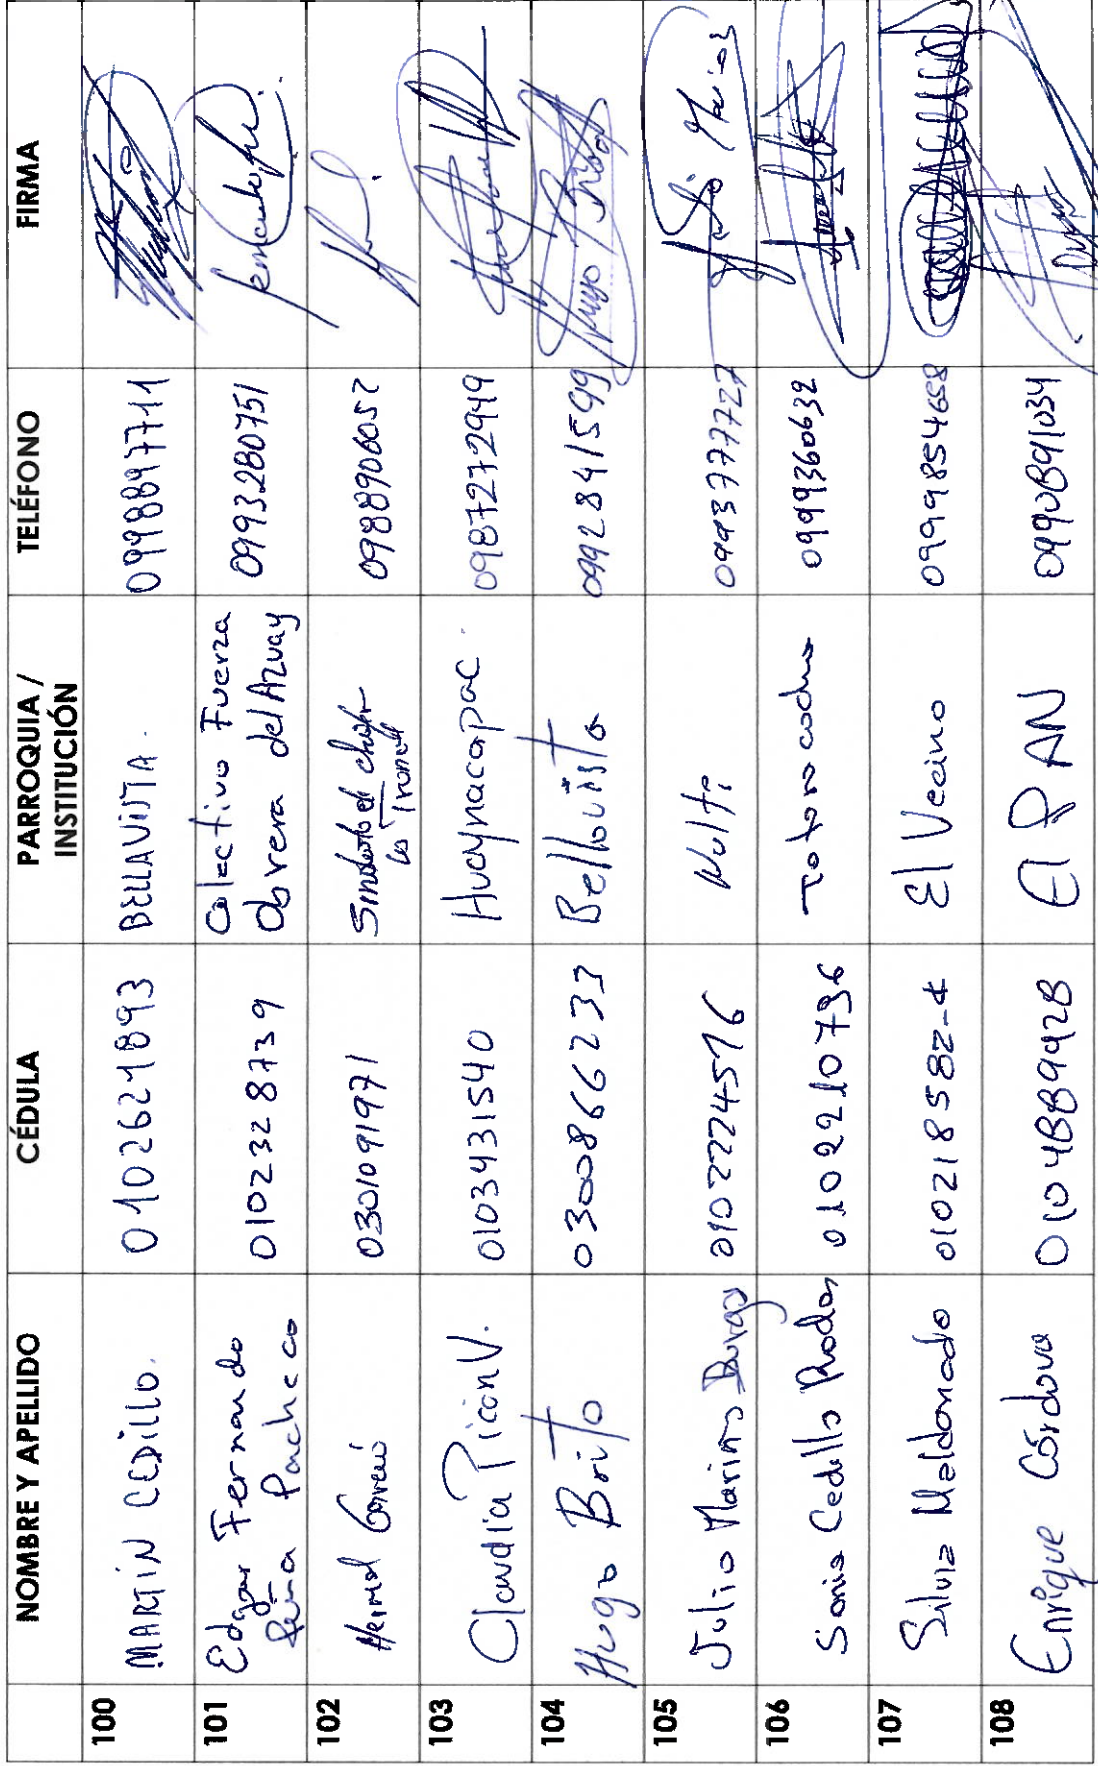 NOMBRE Y APELLIDO CÉDULA PARROQUIA / INSTITUCIÓN TELÉFONO FIRMA
100 MARTÍN CEDILLO. 0102621893 BELLAVISTA. 0998897711
101 Edgar Fernando Peña Pacheco 0102328739 Colectivo Fuerza Obrera del Azuay 0993280751
102 0301091971 0988906052
103 Claudia Picón V. 0103431540 Huaynacapac. 0987272949
104 Hugo Brito 0300866233 Bellavista 0992841599 Hugo Brito
105 Julio Marino 0102224576 Multi 0993777727
106 Sonia Cedillo Rodas 0102210796 Totoracocha 0999360632
107 Silvia Maldonado 010218582-4 El Vecino 0999854658
108 Enrique Córdova 0104889928 El PAN 0990891034